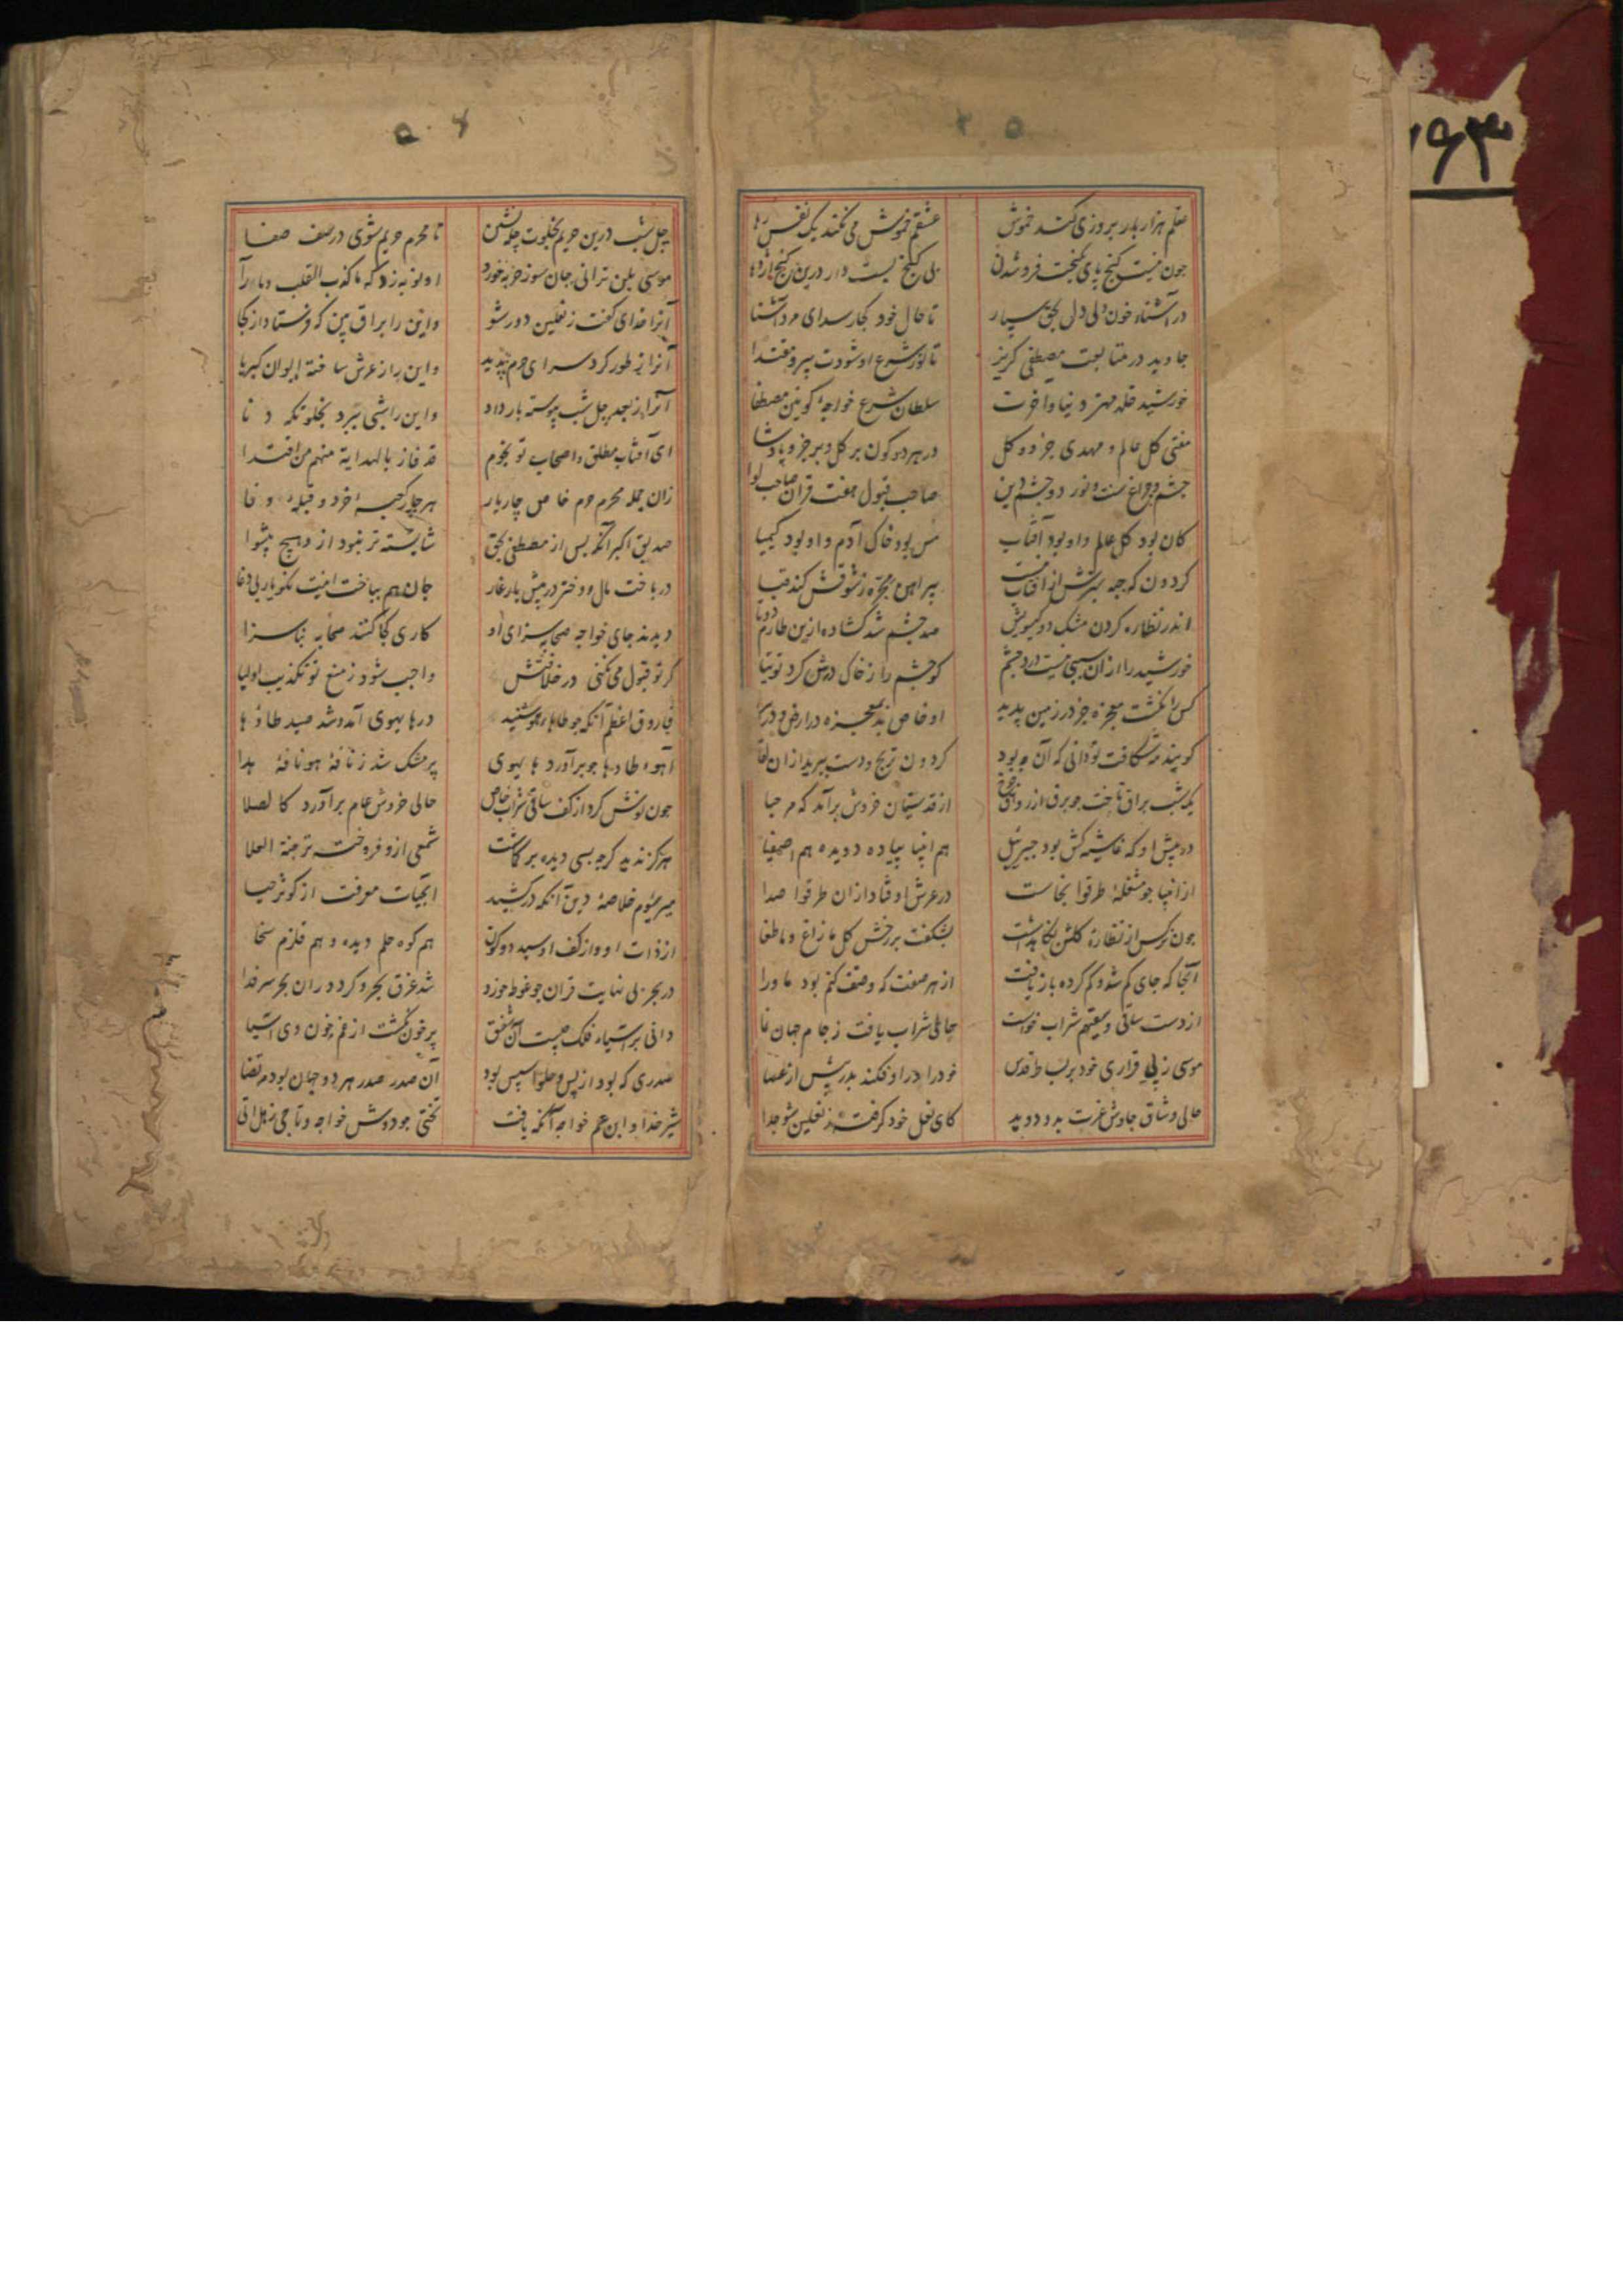 ۲۵
علمم هزار بار بروزی کند خموش عشقم خموش می نکند یک نفس رها
چون نیست کنج پای بکنجت فرو شدن بی کنج نیست دار درین کنج اژدها
در آشناه خون دلی دل بحق سپار تا حال خود کجا رسد ای مرد آشنا
جاوید در متابعت مصطفی کریز تا نور شرع او شودت پیر و مقتدا
خورشید خلد مهتر دنیا و آخرت سلطان شرع خواجه کونین مصطفا
مفتی کل عالم و مهدی جزو و کل در هر دو کون بر کل و بر جزو پادشا
چشم و چراغ سنت و نور دو چشم دین صاحب قبول هفت قران صاحب لوا
کان بود کل عالم و او بود آفتاب مس بود خاک آدم و او بود کیمیا
کردون که جمله سرش از آفتابست پیراهن مجره ز شوقش کند قبا
اندر نظاره کردن مشک دو کیسویش صد چشم شد کشاده ازین طارم دوتا
خورشید را از آن سببی نیست درد چشم کو چشم را ز خاک درش کرد توتیا
کس را نکشت معجزه جز در زمین پدید او خاص بد بمعجزه در ارض و در سما
کویند مه شکافت تو دانی که آن چه بود کردون ترنج و دست ببرید از آن لقا
یک شب براق تاخت چو برق از رواق چرخ از قدسیان خروش برآمد که مرحبا
در پیش او که غاشیه کش بود جبرئیل هم انبیا پیاده دویده هم اصفیا
از انبیا چو مشغله طرقوا بخاست در عرش اوفتاد از آن طرقوا صدا
چون نرکس از نظاره کلشن نکاه داشت بشکفت بر رخش کل ما زاغ و ما طغا
آنجا که جای کم شد و کم کرده باز یافت از هر صفت که وصف کنم بود ماورا
از دست ساقی و سقیهم شراب خواست حالی شراب یافت ز جام جهان نما
موسی ز بی قراری خود بر بساط قدس خود را در او فکند بدریش از عصا
حالی وشاق چاوش عزت بدو دوید کای نعل خود کرفته ز نعلین شو جدا
۵۰۴
چل شب درین حریم بخلوت چله نشین تا محرم حریم شوی در صف صفا
موسی بلن ترانی جان سوز ضربه خورد او نوبه زد که ما کذب القلب ما رآ
آنرا خدای کفت ز نعلین دور شو و این را براق بین که فرستاد از کجا
آنرا ز طور کرد سرای حرم پدید و این را ز عرش ساخته ایوان کبریا
آنرا ز بعد چل شب پیوسته بار داد و این را شبی ببرد بخلوتکه دنا
ای آفتاب مطلق و اصحاب تو نجوم قد فاز بالهدایة منهم من اقتدا
زان جمله محرم حرم خاص چار یار هر چار کعبه خرد و قبله وفا
صدیق اکبر آنکه پس از مصطفی بحق شایسته تر نبود ازو هیچ پیشوا
در باخت مال و دختر در پیش یار غار جان هم بباخت اینت نکو یار بی دغا
دیدند جای خواجه صحابه سزای او کاری کجا کنند صحابه بناسزا
کر تو قبول می نکنی در خلافتش واجب شود ز منع تو تکذیب اولیا
فاروق اعظم آنکه چو طاها و هو شنید در ها بهوی آمد و شد صید طا و ها
آهو و طا و ها چو برآورد ها بهوی پر مشک شد ز نافه هو نافه هدا
چون نوش کرد از کف ساقی شراب خاص حالی خروش عام برآورد کالصلا
هرکز ندید کرچه بسی دیده بر کماشت شمعی ازو فروخته تر جنة العلا
میر سیوم خلاصه دین آنکه درکشید آبحیات معرفت از کوثر حیا
از ذات او و از کف او سید دو کون هم کوه حلم دیده و هم قلزم سخا
در بحر بی نهایت قران چو غوطه خورد شد غرق بحر و کرد در آن بحر سر فدا
دانی بر آسیاء فلک چیست آن شفق پر خون بکشت از غم خون وی آسیا
صدری که بود از پس و حلوا سپس بود آن صدر صدر هر دو جهان بود مرتضا
شیر خدا و ابن عم خواجه آنکه یافت تختی چو دوش خواجه و تاجی ز هل اتی